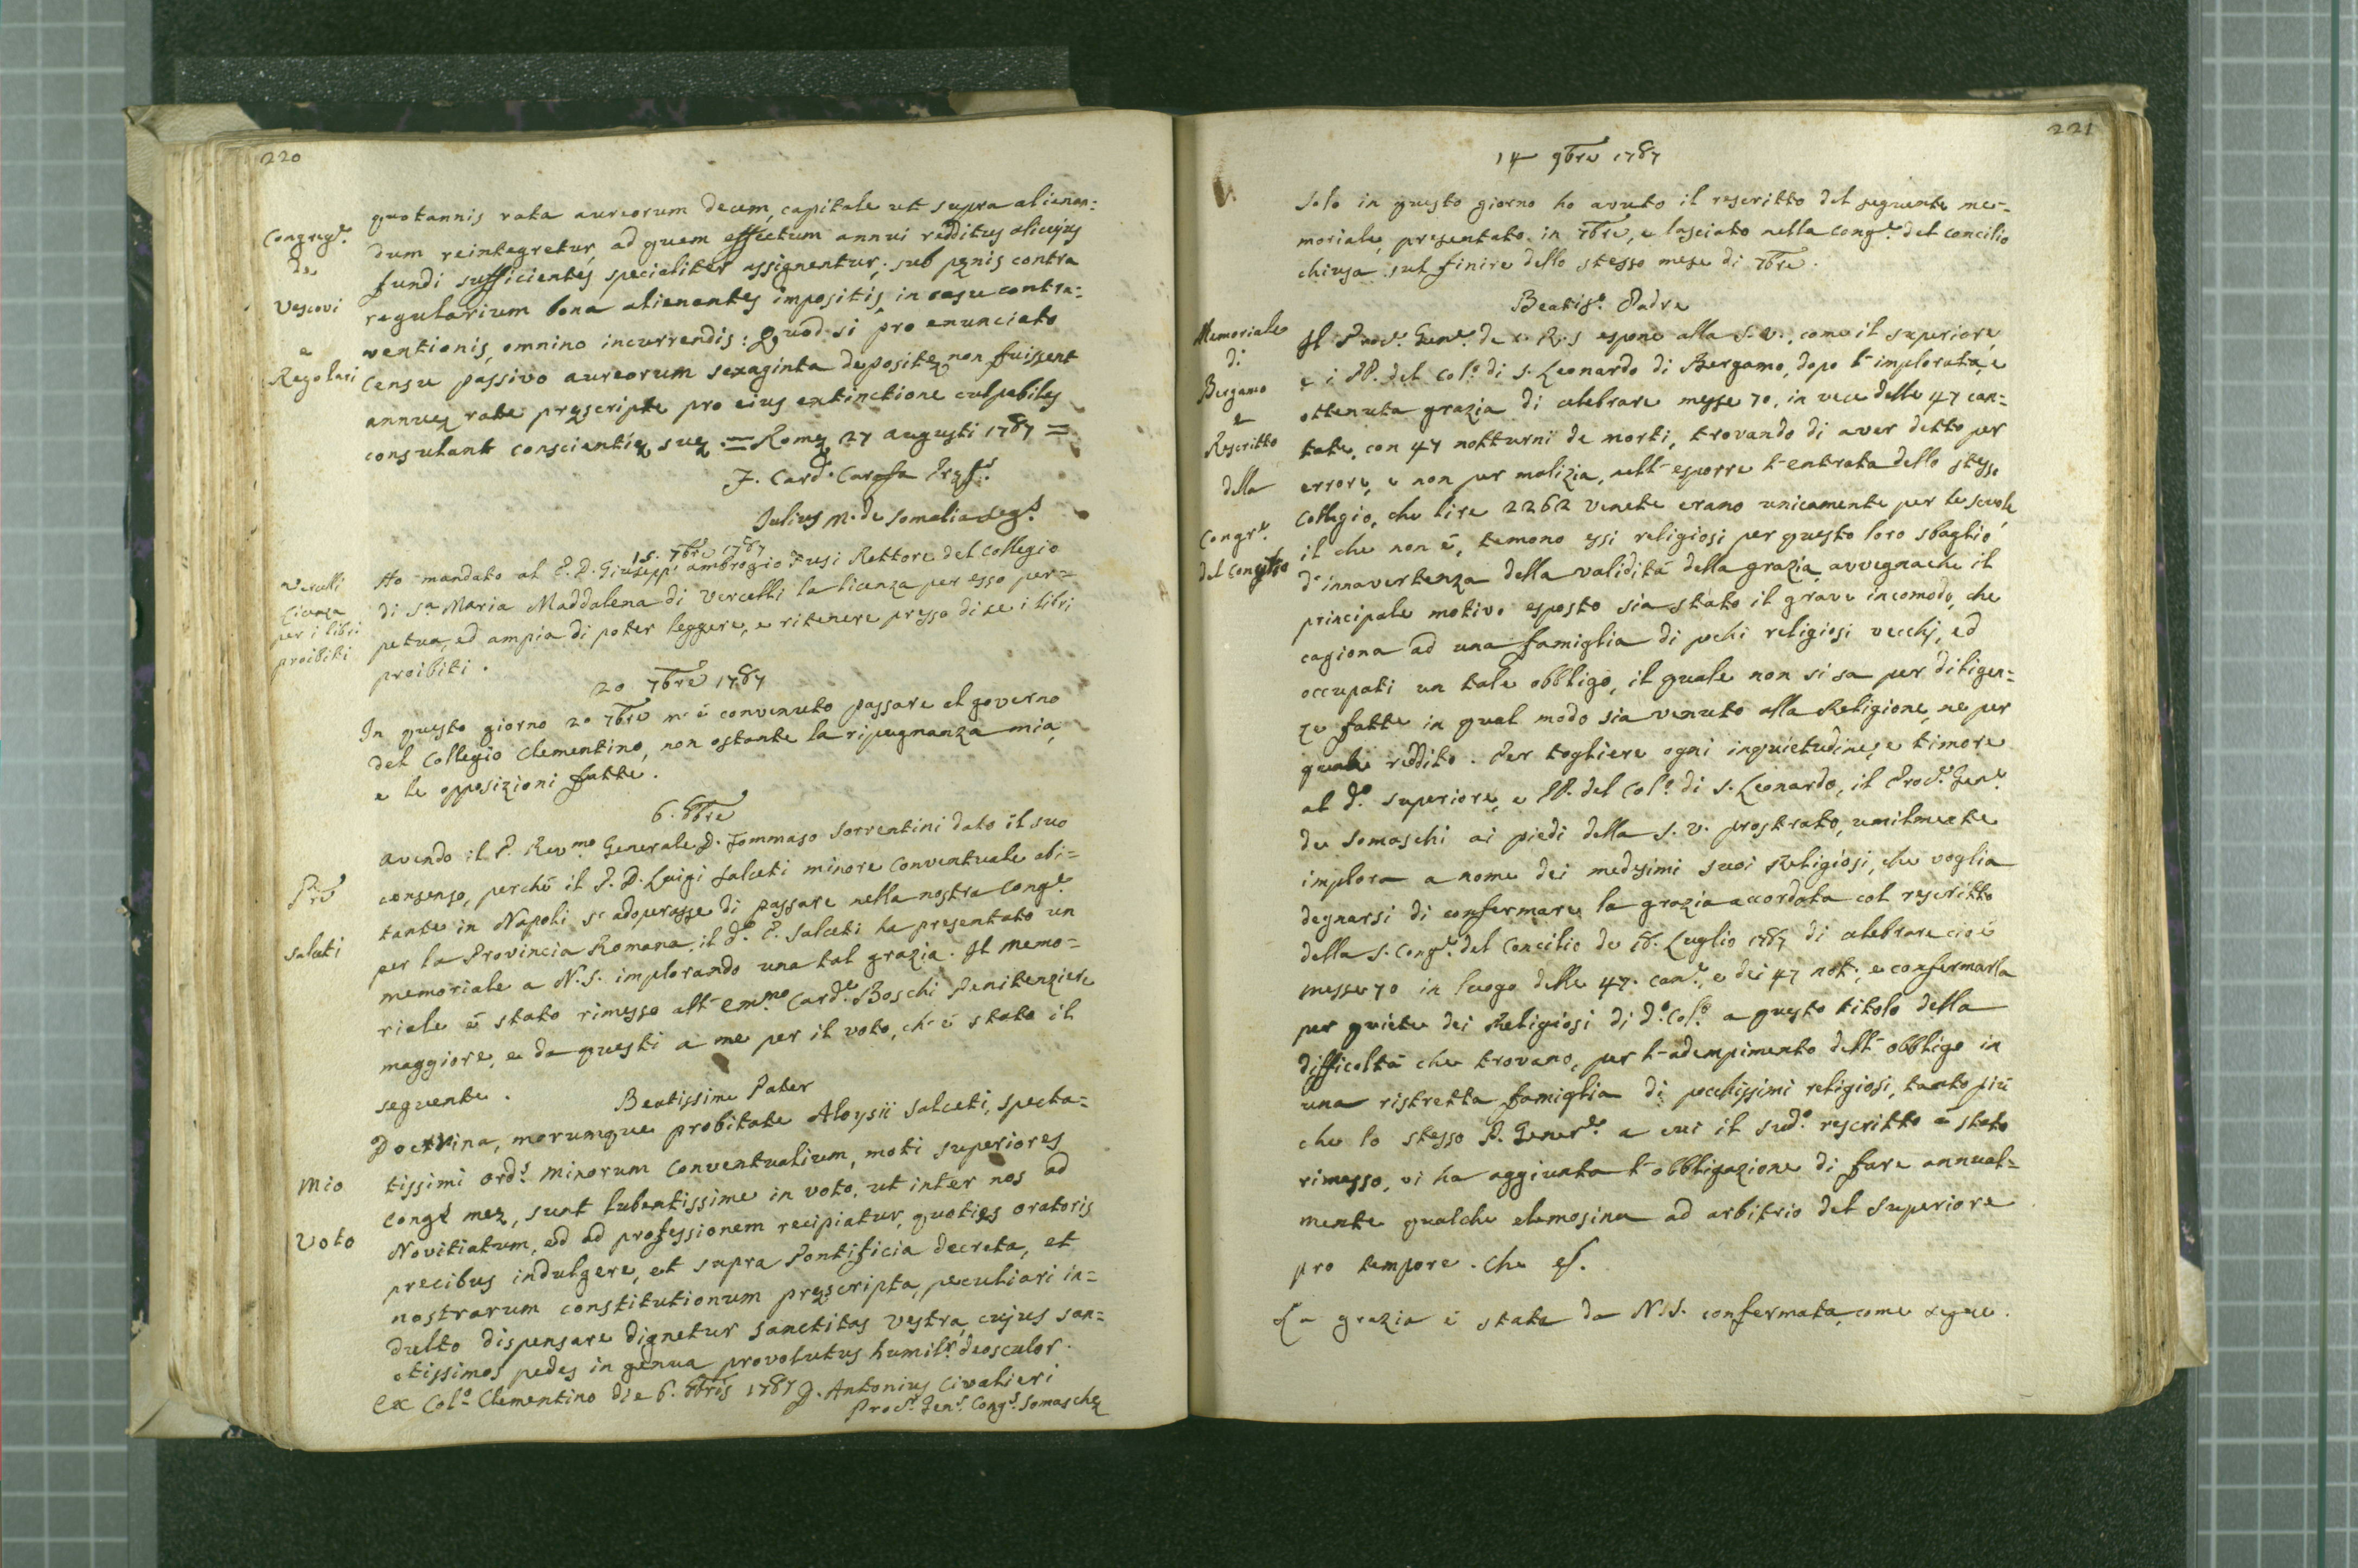 220
quotannis rata aureorum decem, capitale ut supra alienan=
Congreg.e
dum reintegretur, ad quem effectum annui redditus alicujus
de
fundi sufficientes specialiter assignentur; sub pęnis contra
Vescovi
regularium bona alienantes impositis, in casu contra=
e
ventionis, omnino incurrendis: Quod si pro enunciato
Regolari
Censu passivo aureorum sexaginta depositę non fuissent
annuę ratę pręscriptę pro eius extinctione culpabiles
consulant conscientię suę. = Romę 27 augusti 1787 =
F. Card. Carafa Pręf.s
Julius M. de Somalia Seg.s
15. 7bre 1787
Vercelli
Licenza
per i libri
proibiti
Ho mandato al P. D. Giuseppe Ambrogio Fusi Rettore del Collegio
di S.a Maria Maddalena di Vercelli la licenza per esso per=
petua, ed ampia di poter leggere, e ritenere presso di se i libri
proibiti.
20 7bre 1787
In questo giorno 20 7bre m'è convenuto passare al governo
del Collegio Clementino, non ostante la ripugnanza mia,
e le opposizioni fatte.
6. 8bre
Avendo il P. Rev.mo Generale D. Tommaso Sorrentini dato il suo
consenso, perchè il P. D. Luigi Salceti minore Conventuale abi=
Salceti
tante in Napoli s'adoperasse di passare nella nostra Cong.e
per la Provincia Romana, il d.o P. Salceti ha presentato un
memoriale a N. S. implorando una tal grazia. Il Memo=
riale è stato rimesso all'Em.mo Card.e Boschi Penitenziere
maggiore, e da questi a me per il voto, ch'è stato il
seguente.
Beatissime Pater
Doctrina, morumque probitate Aloysii Salceti, specta=
Mio
tissimi ord.s Minorum Conventualium, moti superiores
Cong.s meę, sunt lubentissime in voto, ut inter nos ad
Voto
Novitiatum, ed ad professionem recipiatur, quoties oratoris
precibus indulgere, et supra Pontificia decreta, et
nostrarum constitutionum pręscripta, peculiari in=
dulto dispensare dignetur Sanctitas Vestra, cujus san=
ctissimos pedes in genua provolutus humil.r deosculor.
Ex Col.o Clementino die 6. 8bris 1787 D. Antonius Civalieri
Proc.r Gen.s Cong.s Somaschę
221
14 9bre 1787
Solo in questo giorno ho avuto il rescritto del seguente me=
moriale, presentato in 7bre, e lasciato nella Cong.e del concilio
chiusa sul finire dello stesso mese di 7bre.
Beatis.o Padre
Memoriale
di
Bergamo
e
Rescritto
della
Congr.e
del Concilio
Il Proc.e Gen.e de C. R. S espone alla S. V., come il superiore,
e i PP. del Col.o di S. Leonardo di Bergamo, dopo l'implorata, e
ottenuta grazia di celebrare messe 70, in vece delle 47 can=
tate, con 47 notturni de morti, trovando di aver detto per
errore, e non per malizia, nell'esporre l'entrata dello stesso
Collegio, che lire 2262 venete erano unicamente per le scuole,
il che non è, temono essi religiosi per questo loro sbaglio
d'innavertenza della validità della grazia, avvegnache il
principale motivo esposto sia stato il grave incomodo, che
cagiona ad una famiglia di pochi religiosi vecchj, ed
occupati un tale obbligo, il quale non si sa per diligen=
ze fatte in qual modo sia venuto alla Religione, ne per
quale reddito. Per togliere ogni inquietudine, e timore
al d.o superiore, e PP. del Col.o di S. Leonardo, il Proc.e Gen.e
de Somaschi ai piedi della S. V. prostrato, umilmente
implora a nome dei medesimi suoi Religiosi, che voglia
degnarsi di confermare la grazia accordata col rescritto
della S. Cong.e del Concilio de 18. Luglio 1787 di celebrare cioè
messe 70 in luogo delle 47. can.e, e dei 47 not.i, e confermarla
per quiete dei Religiosi di d.o Col.o a questo titolo della
difficoltà che trovano, per l'adempimento dell'obbligo in
una ristretta famiglia di pochissimi religiosi, tanto più
che lo stesso P. Gener.e a cui il sud.o rescritto è stato
rimesso, vi ha aggiunta l'obbligazione di fare annual=
mente qualche elemosina ad arbitrio del Superiore
pro tempore. Che
La grazia è stata da N. S. confermata, come segue.